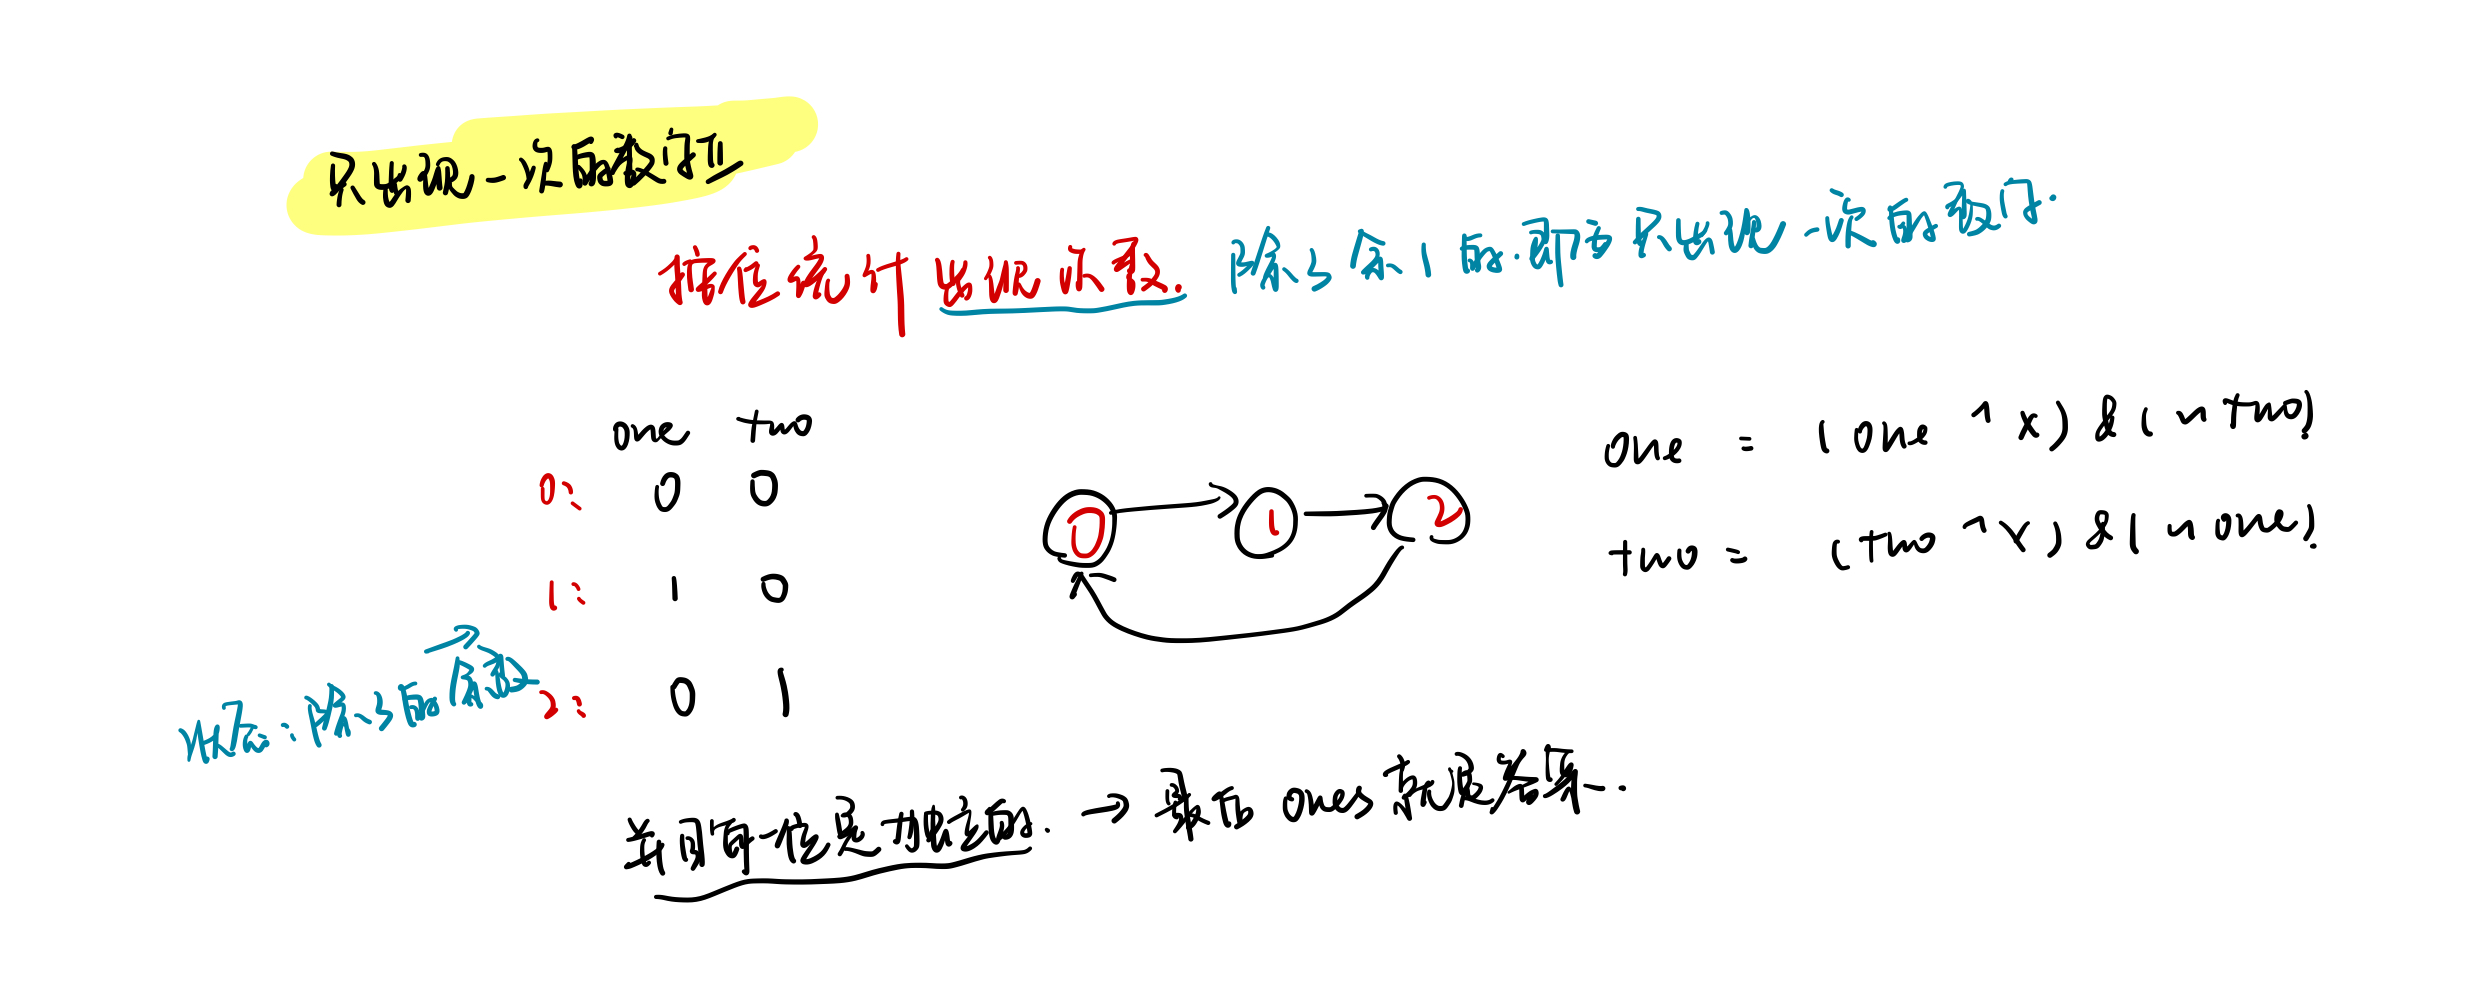 只出现一次的数字 II
按位统计出现次数. 除3余1的.即为只出现一次的数字.
one two
0: 0 0
1: 1 0
状态:除3的余数→ 2: 0 1
0 1 2
one = (one ^ x) & (~ two)
two = (two ^ x) & (~ one)
并同每一位是独立的. → 最后 ones 就是答案.